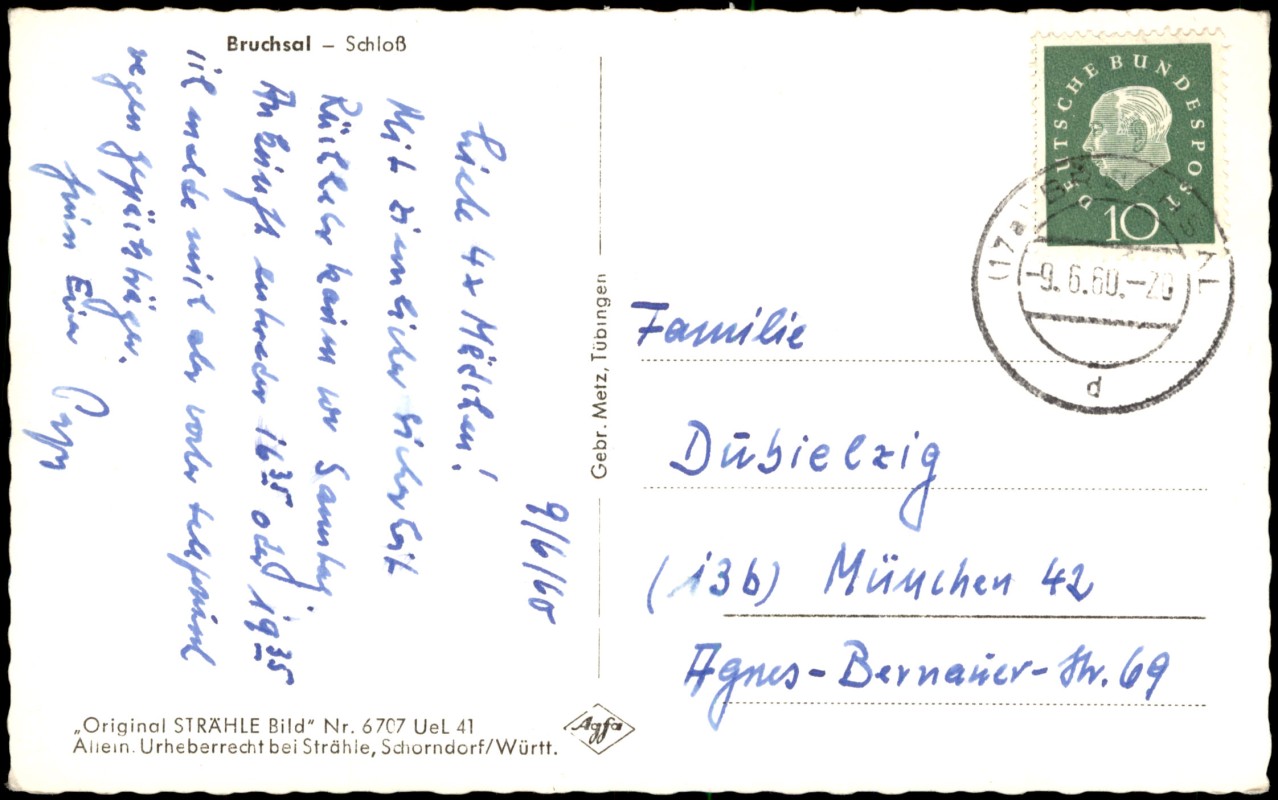 Bruchsal – Schloß
9/6/60
Liebe 4x Mädchen!
Mit ziemlicher Sicherheit
Rückkehr kann
Samstag.
Ankunft entweder 16³⁵ oder 19³⁵
ich melde mich aber vorher
wegen Gepäckträger.
Euer
Gebr. Metz, Tübingen
DEUTSCHE BUNDESPOST
10
(17a)
-9.6.60.-20
d
Familie
Dubielzig
(13b) München 42
Agnes-Bernauer-Str. 69
„Original STRÄHLE Bild" Nr. 6707 UeL 41
Allein. Urheberrecht bei Strähle, Schorndorf/Württ.
Agfa